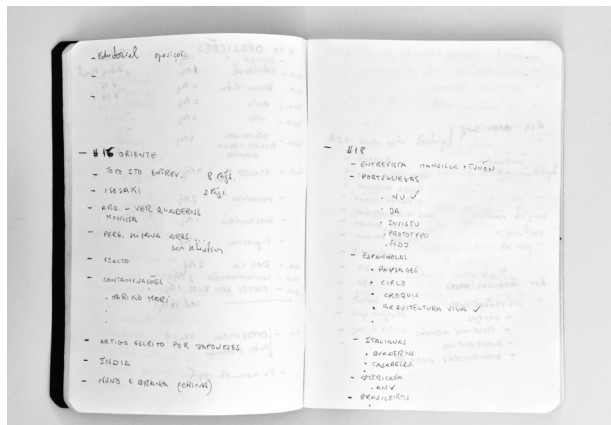 - Editorial oposições
-
-
- # 16 ORIENTE
- TOYO ITO ENTREV. 8 Págs.
- ISOSAKI. 2 Págs.
- ARQ. - VER QUADERNS
- ISACTO
- CONTAMINAÇÕES
. MARIKO MORI
.
.
- ARTIGO ESCRITO POR JAPONESES
- ÍNDIA
- NUNO E BRANKA (CHINA)
- #18
- ENTREVISTA MANSILLA + TUÑÓN
- PORTUGUESAS
. NU ✓
. JA
. INSISTU
. PROTOTYPO
- ESPANHOLAS
. PAYSAGES
. CIRCO
. CROQUIS
. ARQUITECTURA VIVA ✓
- ITALIANAS
. QUADERNS
. CASABELLA
- AMERICANA
. ANY
- BRASILEIRAS
.